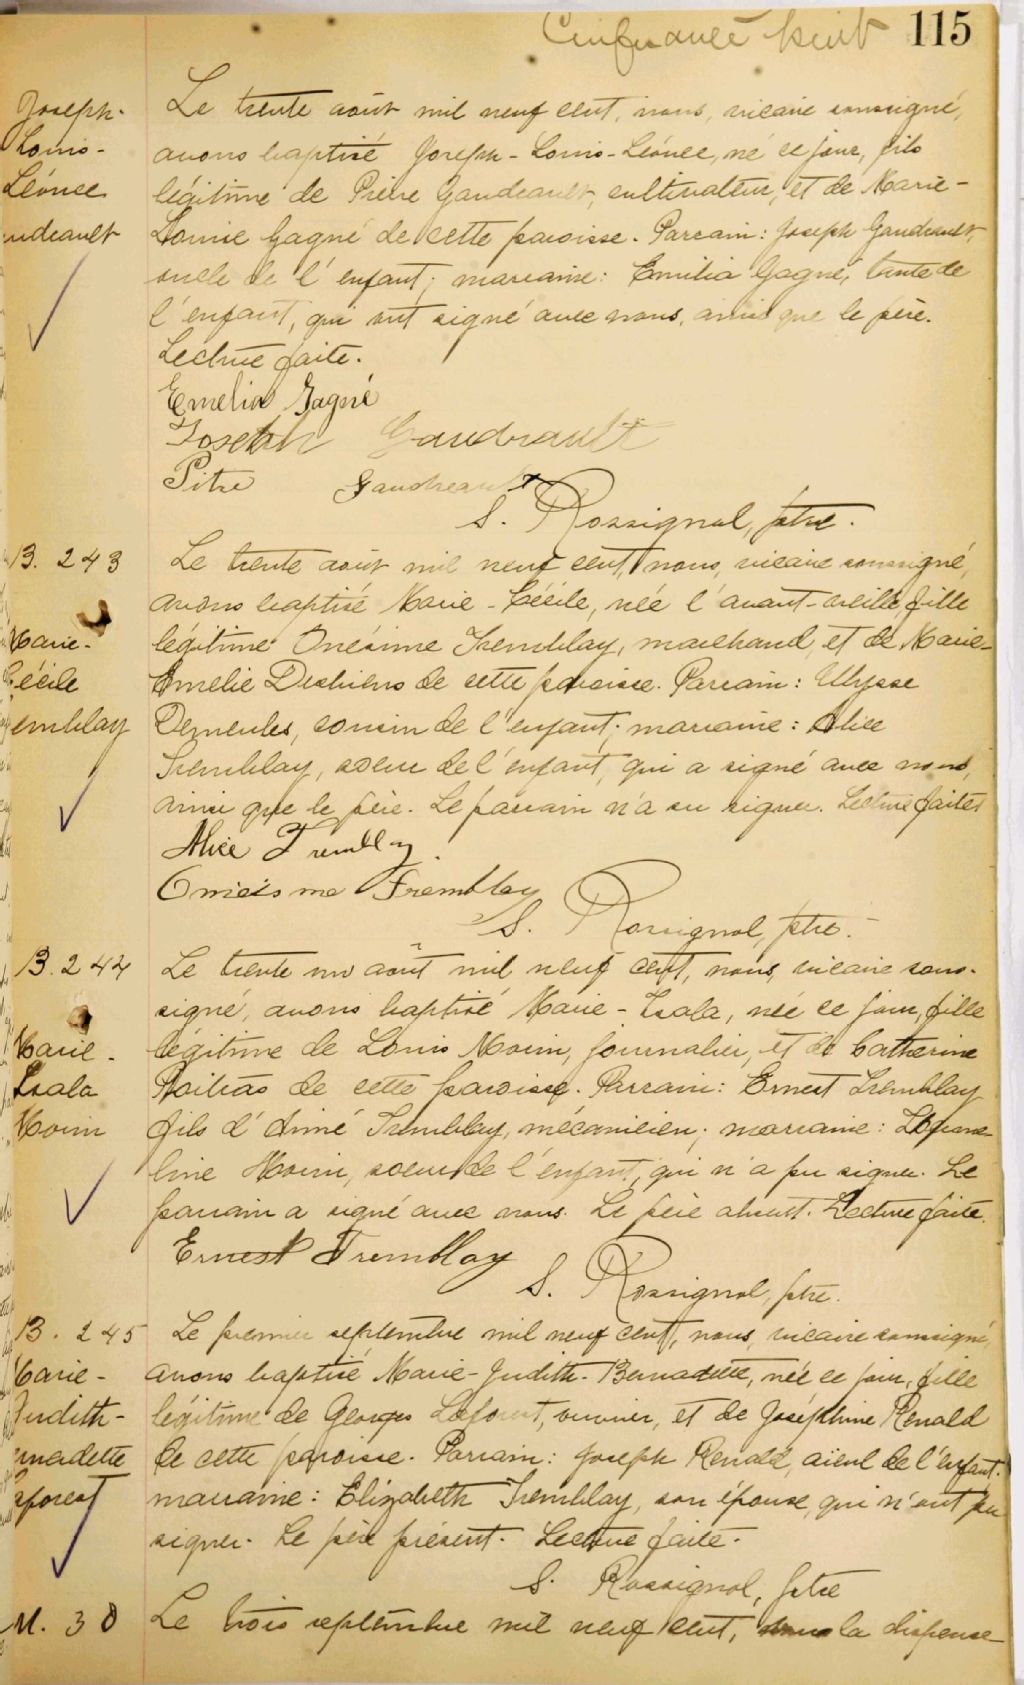 Cinquante huit 115
Joseph-
Louis-
Léonce
udreault
Le trente août mil neuf cent, nous, vicaire soussigné,
avons baptisé Joseph-Louis-Léonce, né ce jour, fils
légitime de Pierre Gaudreault, cultivateur, et de Marie-
Louise Gagné de cette paroisse. Parrain: Joseph Gaudreault,
oncle de l'enfant; marraine: Emilia Gagné, tante de
l'enfant, qui ont signé avec nous, ainsi que le père.
Lecture faite.
Emelia Gagné
Joseph Gaudreault
Pitre Gaudreault
S. Rossignol, ptre.
B. 243
Marie-
Cécile
emblay
Le trente août mil neuf cent, nous, vicaire soussigné,
avons baptisé Marie-Cécile, née l'avant-veille, fille
légitime Onésime Tremblay, marchand, et de Marie-
Emelie Desbiens de cette paroisse. Parrain: Ulysse
Demeules, cousin de l'enfant; marraine: Alice
Tremblay, soeur de l'enfant, qui a signé avec nous,
ainsi que le père. Le parrain n'a su signer. Lecture faite.
Alice Tremblay
Oneisme Tremblay
S. Rossignol, ptre.
B. 244
Marie-
Isala
Morin
Le trente un août mil neuf cent, nous, vicaire sous-
signé, avons baptisé Marie-Isala, née ce jour, fille
légitime de Louis Morin, journalier, et de Catherine
Poitras de cette paroisse. Parrain: Ernest Tremblay
fils d'Aimé Tremblay, mécanicien; marraine:
line Morin, soeur de l'enfant, qui n'a pu signer. Le
parrain a signé avec nous. Le père absent. Lecture faite.
Ernest Tremblay
S. Rossignol, ptre.
B. 245
Marie-
Judith-
rnadette
aforest
Le premier septembre mil neuf cent, nous, vicaire soussigné,
avons baptisé Marie-Judith-Bernadette, née ce jour, fille
légitime de Georges Laforest, ouvrier, et de Joséphine Renald
de cette paroisse. Parrain: Joseph Renald, aïeul de l'enfant.
marraine: Elizabeth Tremblay, son épouse, qui n'ont pu
signer. Le père présent. Lecture faite.
S. Rossignol, ptre
M. 38
Le trois septembre mil neuf cent, la dispense